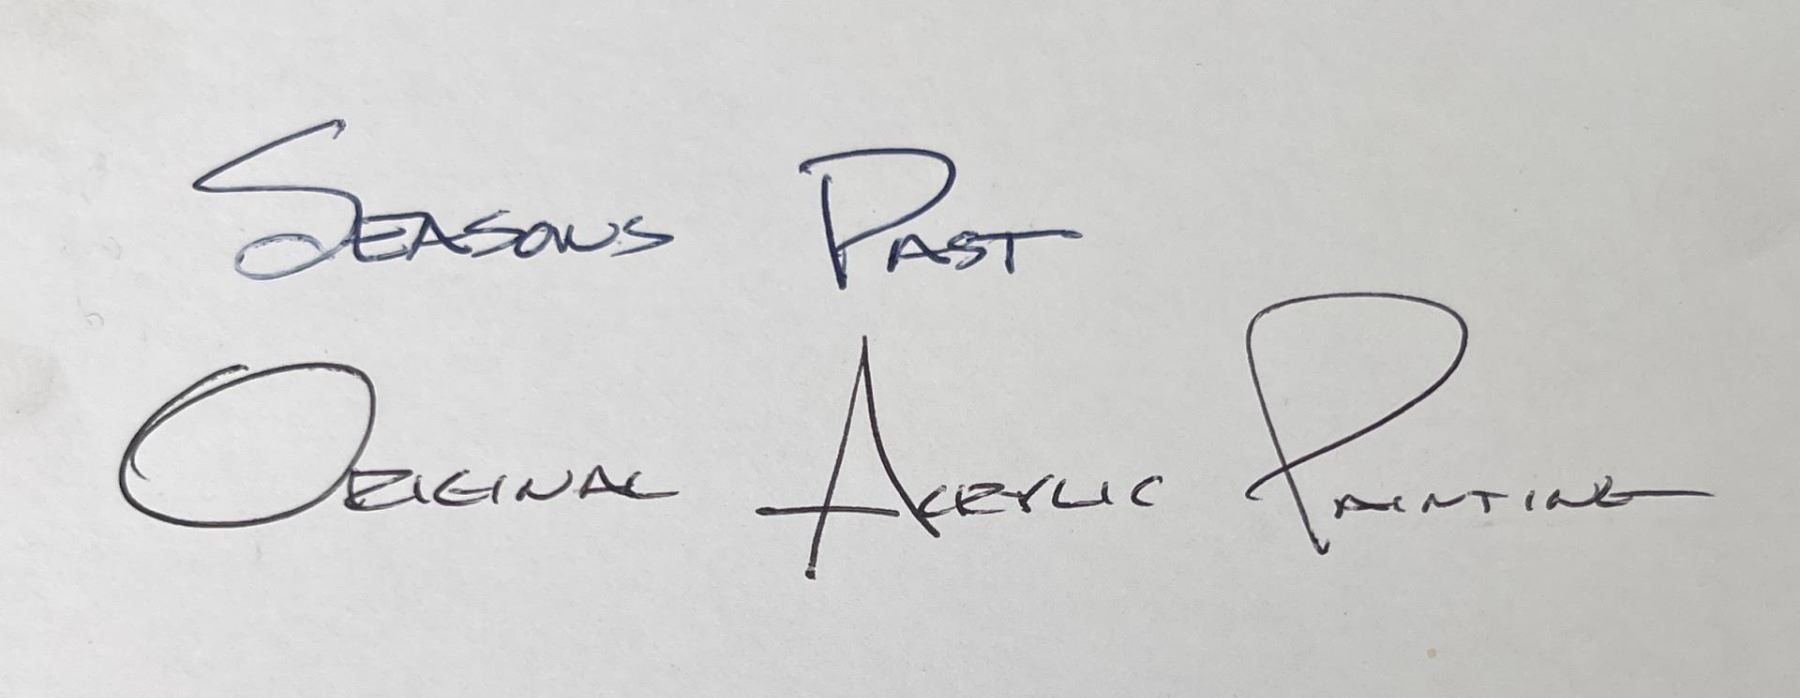 Seasons Past
Original Acrylic Painting